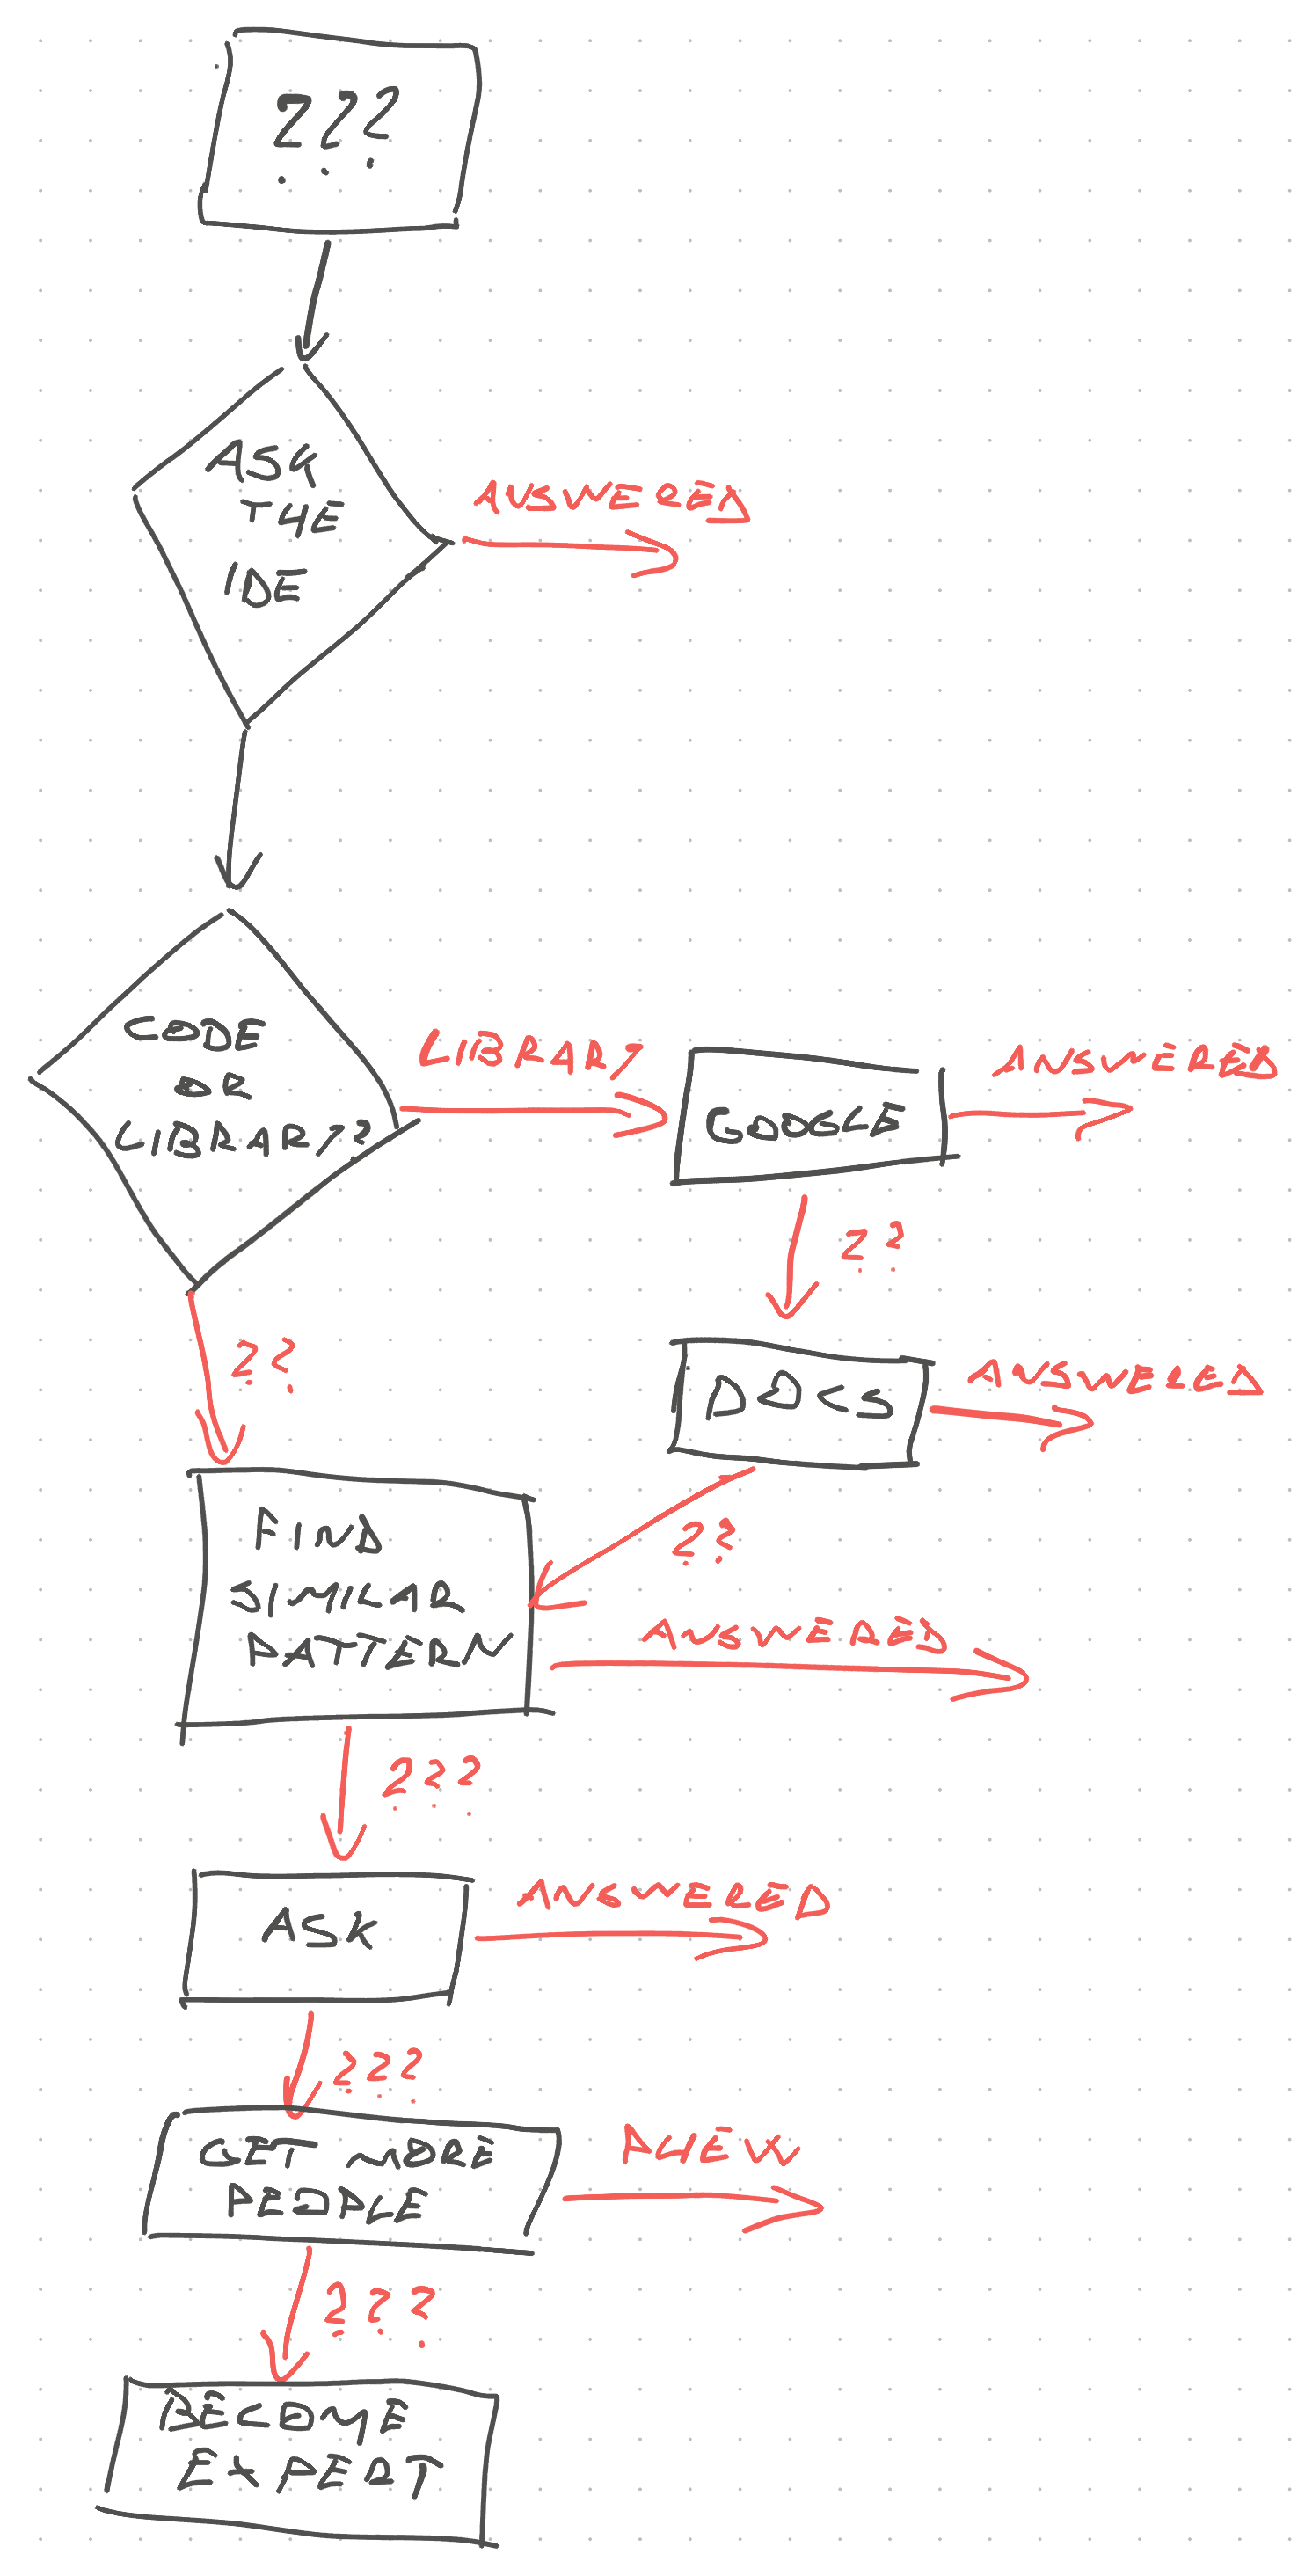 ???
ASK
THE
IDE
ANSWERED
CODE
OR
LIBRARY?
LIBRARY
GOOGLE
ANSWERED
??
DOCS
ANSWERED
??
??
FIND
SIMILAR
PATTERN
ANSWERED
???
ASK
ANSWERED
???
GET MORE
PEOPLE
PHEW
???
BECOME
EXPERT